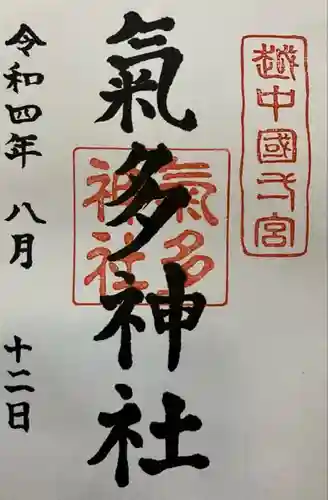 越中國一宮
氣多神社
氣多
神社
令和四年 八月 十二日